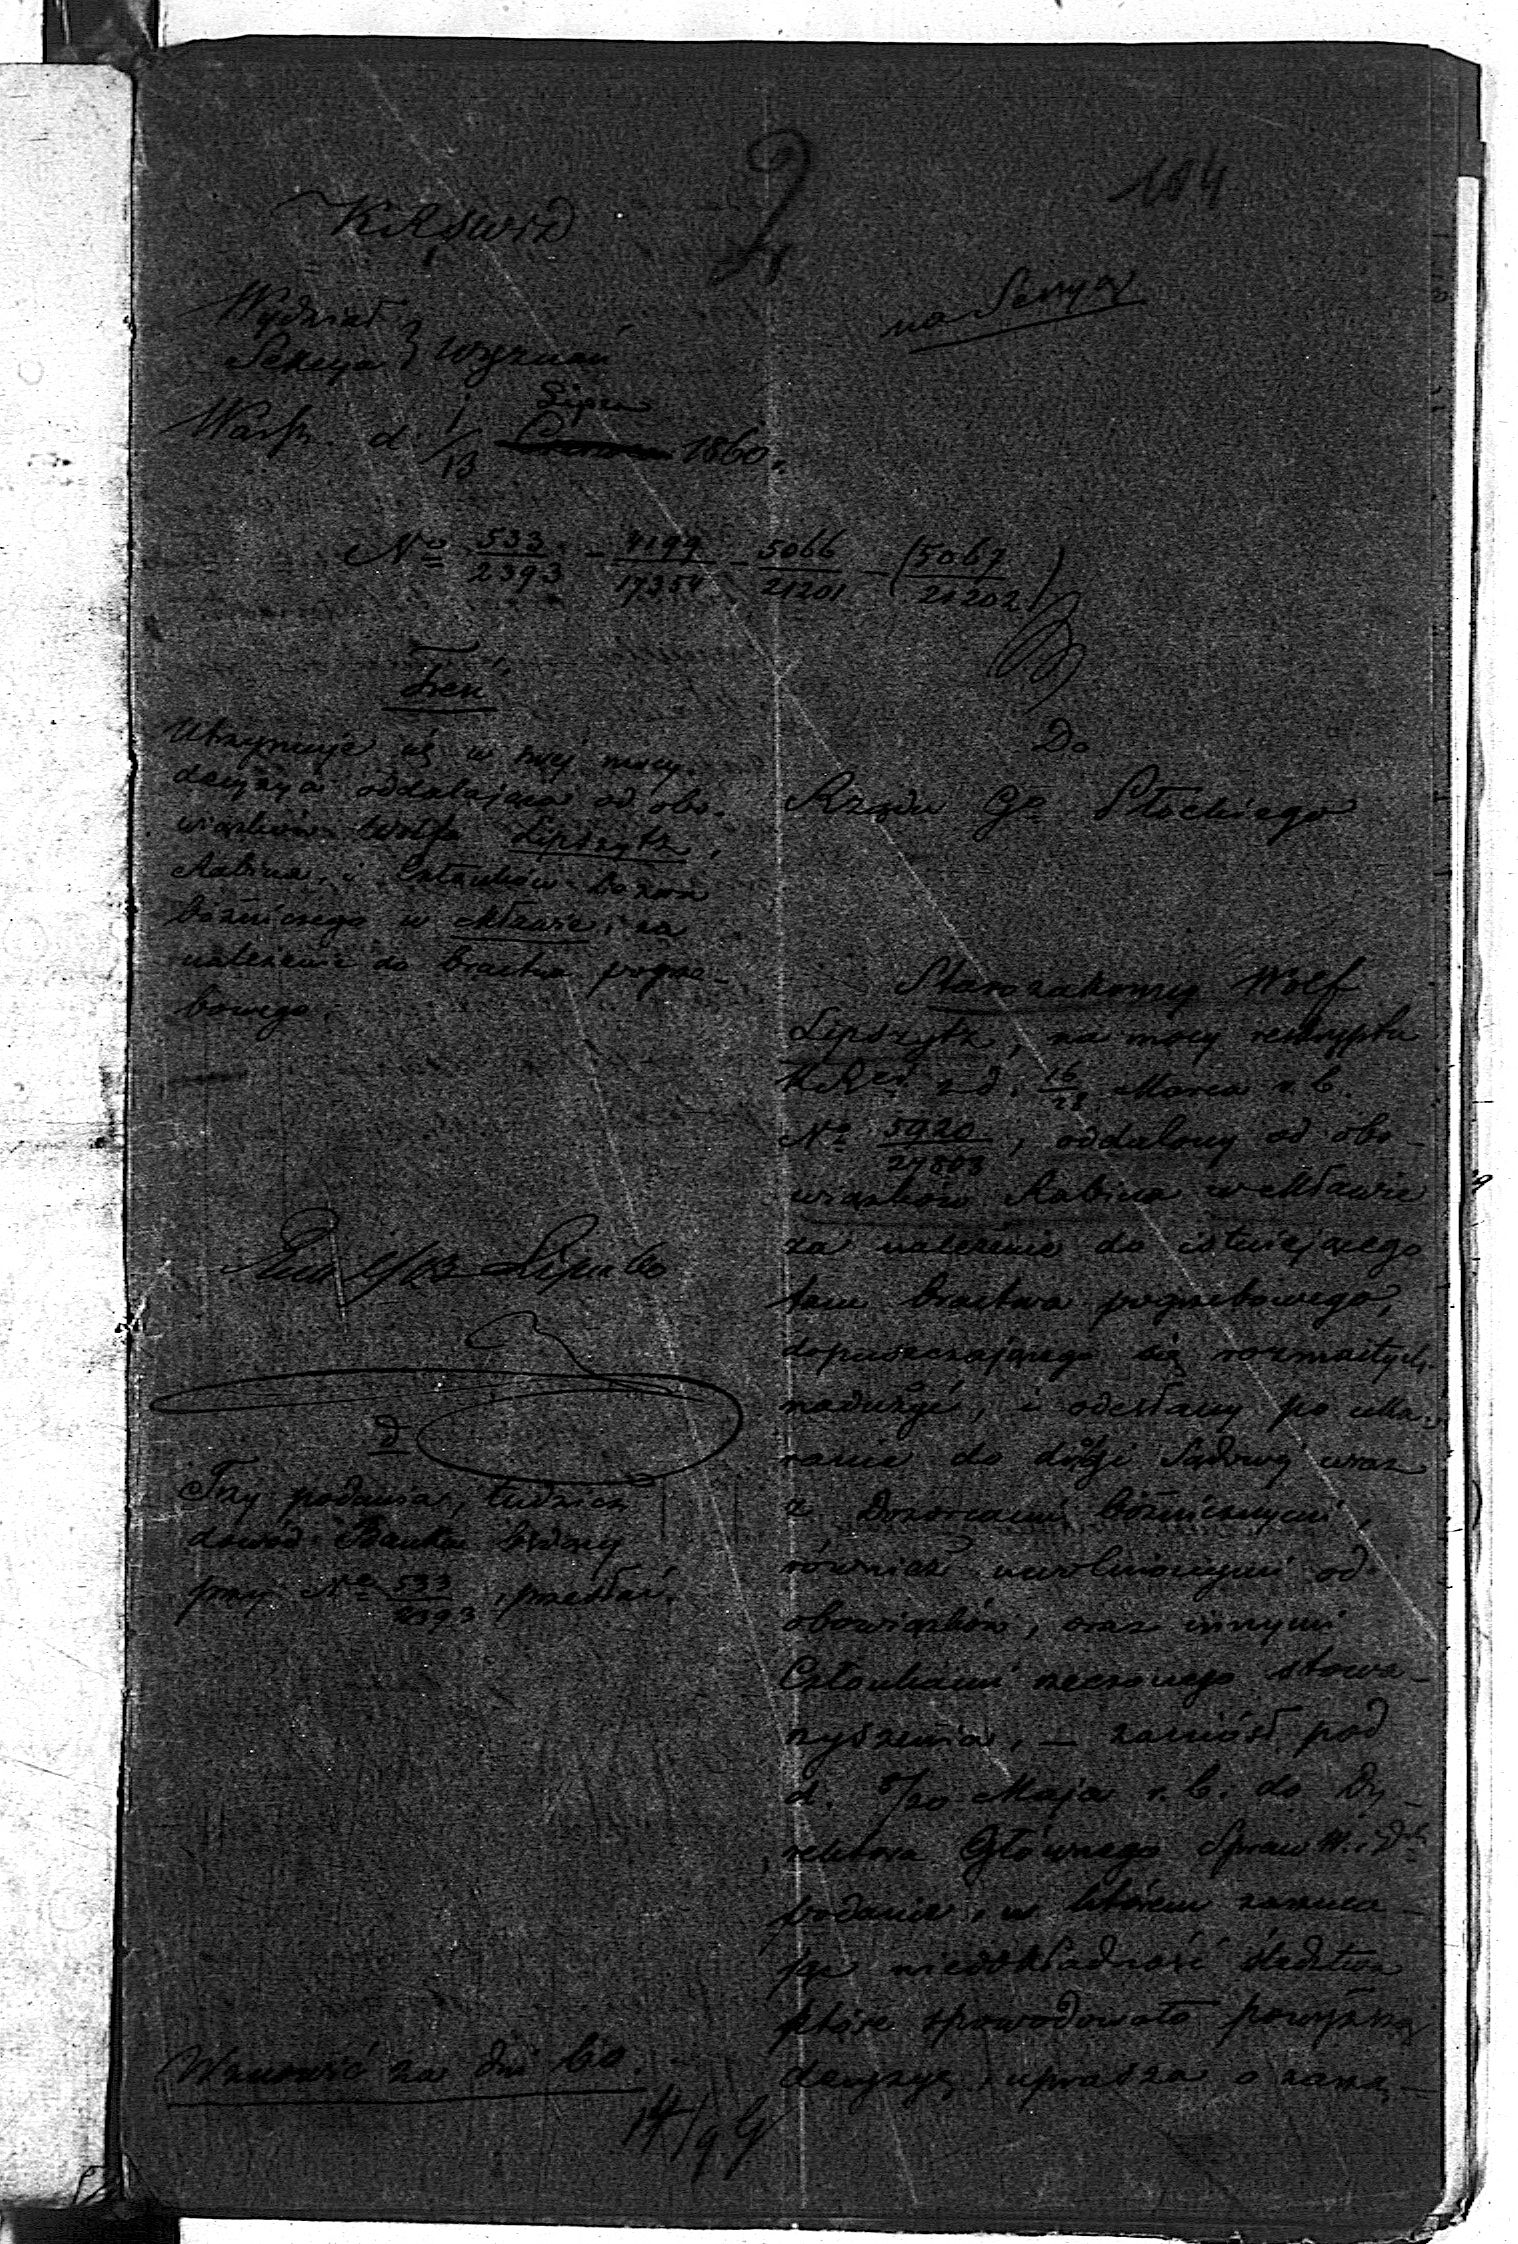 104
KRSWiD
na Sessyą
Wydział
Sekcya } Wyznań
Lipca
Warsz. d. 1/13 1860.
No 533/2393 - 4199/17354 - 5066/21201 - (5067/21202)
Treść
Utrzymuje się w swej mocy
decyzya oddalająca od obo-
wiązków Wolfa Lipszytz,
Rabina, i Członków Dozoru
Bóżniczego w Mławie, za
należenie do bractwa pogrze-
bowego.
1/13 Lipca 60
Trzy podania, tudzież
dowód Banku
przy No 533/2393, przesłać.
Wznowić za dni 60.
14/9
Do
Rządu Go Płockiego
Starozakonny Wolf
Lipszytz, na mocy reskryptu
K Rej z d. 16/28 Marca r. b.
No 5920/27803, oddalony od obo-
wiązków Rabina w Mławie
za należenie do istniejącego
tam bractwa pogrzebowego,
dopuszczającego się rozmaitych
nadużyć, i odesłany po uka-
ranie do drogi Sądowej wraz
z Dozorcami bóżnicznymi,
również uwolnionymi od
obowiązków, oraz innymi
Członkami rzeczonego stowa-
rzyszenia, — zaniósł pod
d. 8/20 Maja r. b. do Dy-
rektora Głównego Spraw W. i D.
podanie, w którem zarzuca-
jąc niedokładność śledztwa
które spowodowało powyższą
decyzyę, uprasza o zarzą-